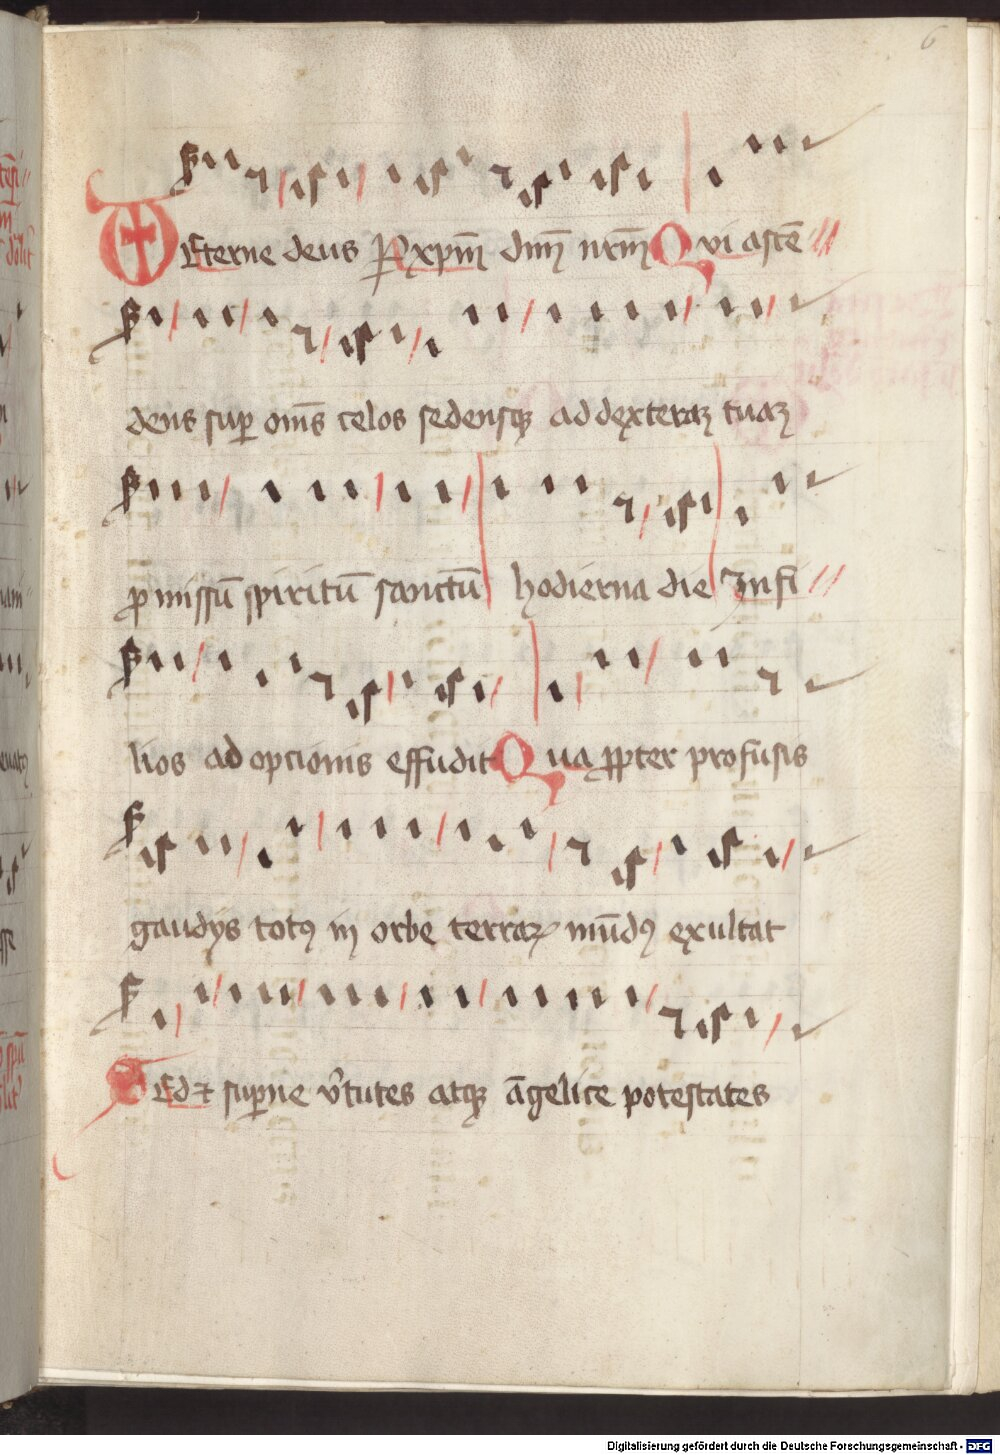 6
Eterne deus P xpm̄ dnm̄ nrm̄ Qui ascē
dens sup om̄s celos sedensqꝫ ad dexteraꝫ tuaꝫ
pmissū spiritū sanctū hodierna die Jn fi
lios adopcionis effudit Qua ppter profusis
gaudys totꝰ in orbe terraꝝ mūdꝰ exultat
Sed ⁊ supne v̓tutes atqꝫ āgelice potestates
Digitalisierung gefördert durch die Deutsche Forschungsgemeinschaft - DFG